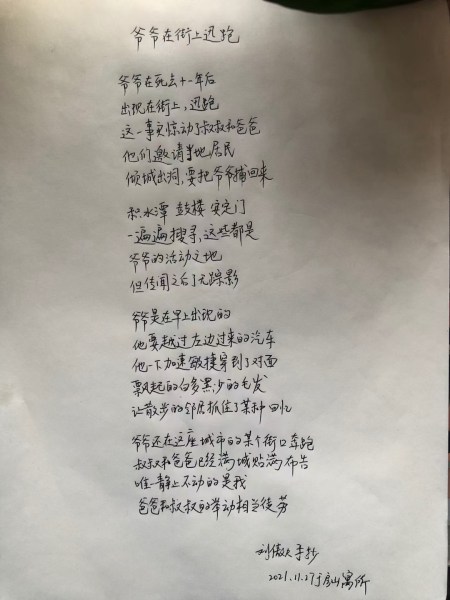 爷爷在街上迅跑
爷爷在死去十一年后
出现在街上，迅跑
这一事实惊动了叔叔和爸爸
他们邀请当地居民
倾城出洞，要把爷爷捕回来
积水潭 鼓楼 安定门
一遍遍搜寻，这些都是
爷爷的活动之地
但传闻之后了无踪影
爷爷是在早上出现的
他要越过左边过来的汽车
他一下加速敏捷穿到了对面
飘起的白多黑少的毛发
让散步的邻居抓住了某种回忆
爷爷还在这座城市的某个街口奔跑
叔叔和爸爸已经满城贴满布告
唯一静止不动的是我
爸爸和叔叔的举动相当徒劳
刘傲夫手抄
2021.11.27于房山寓所